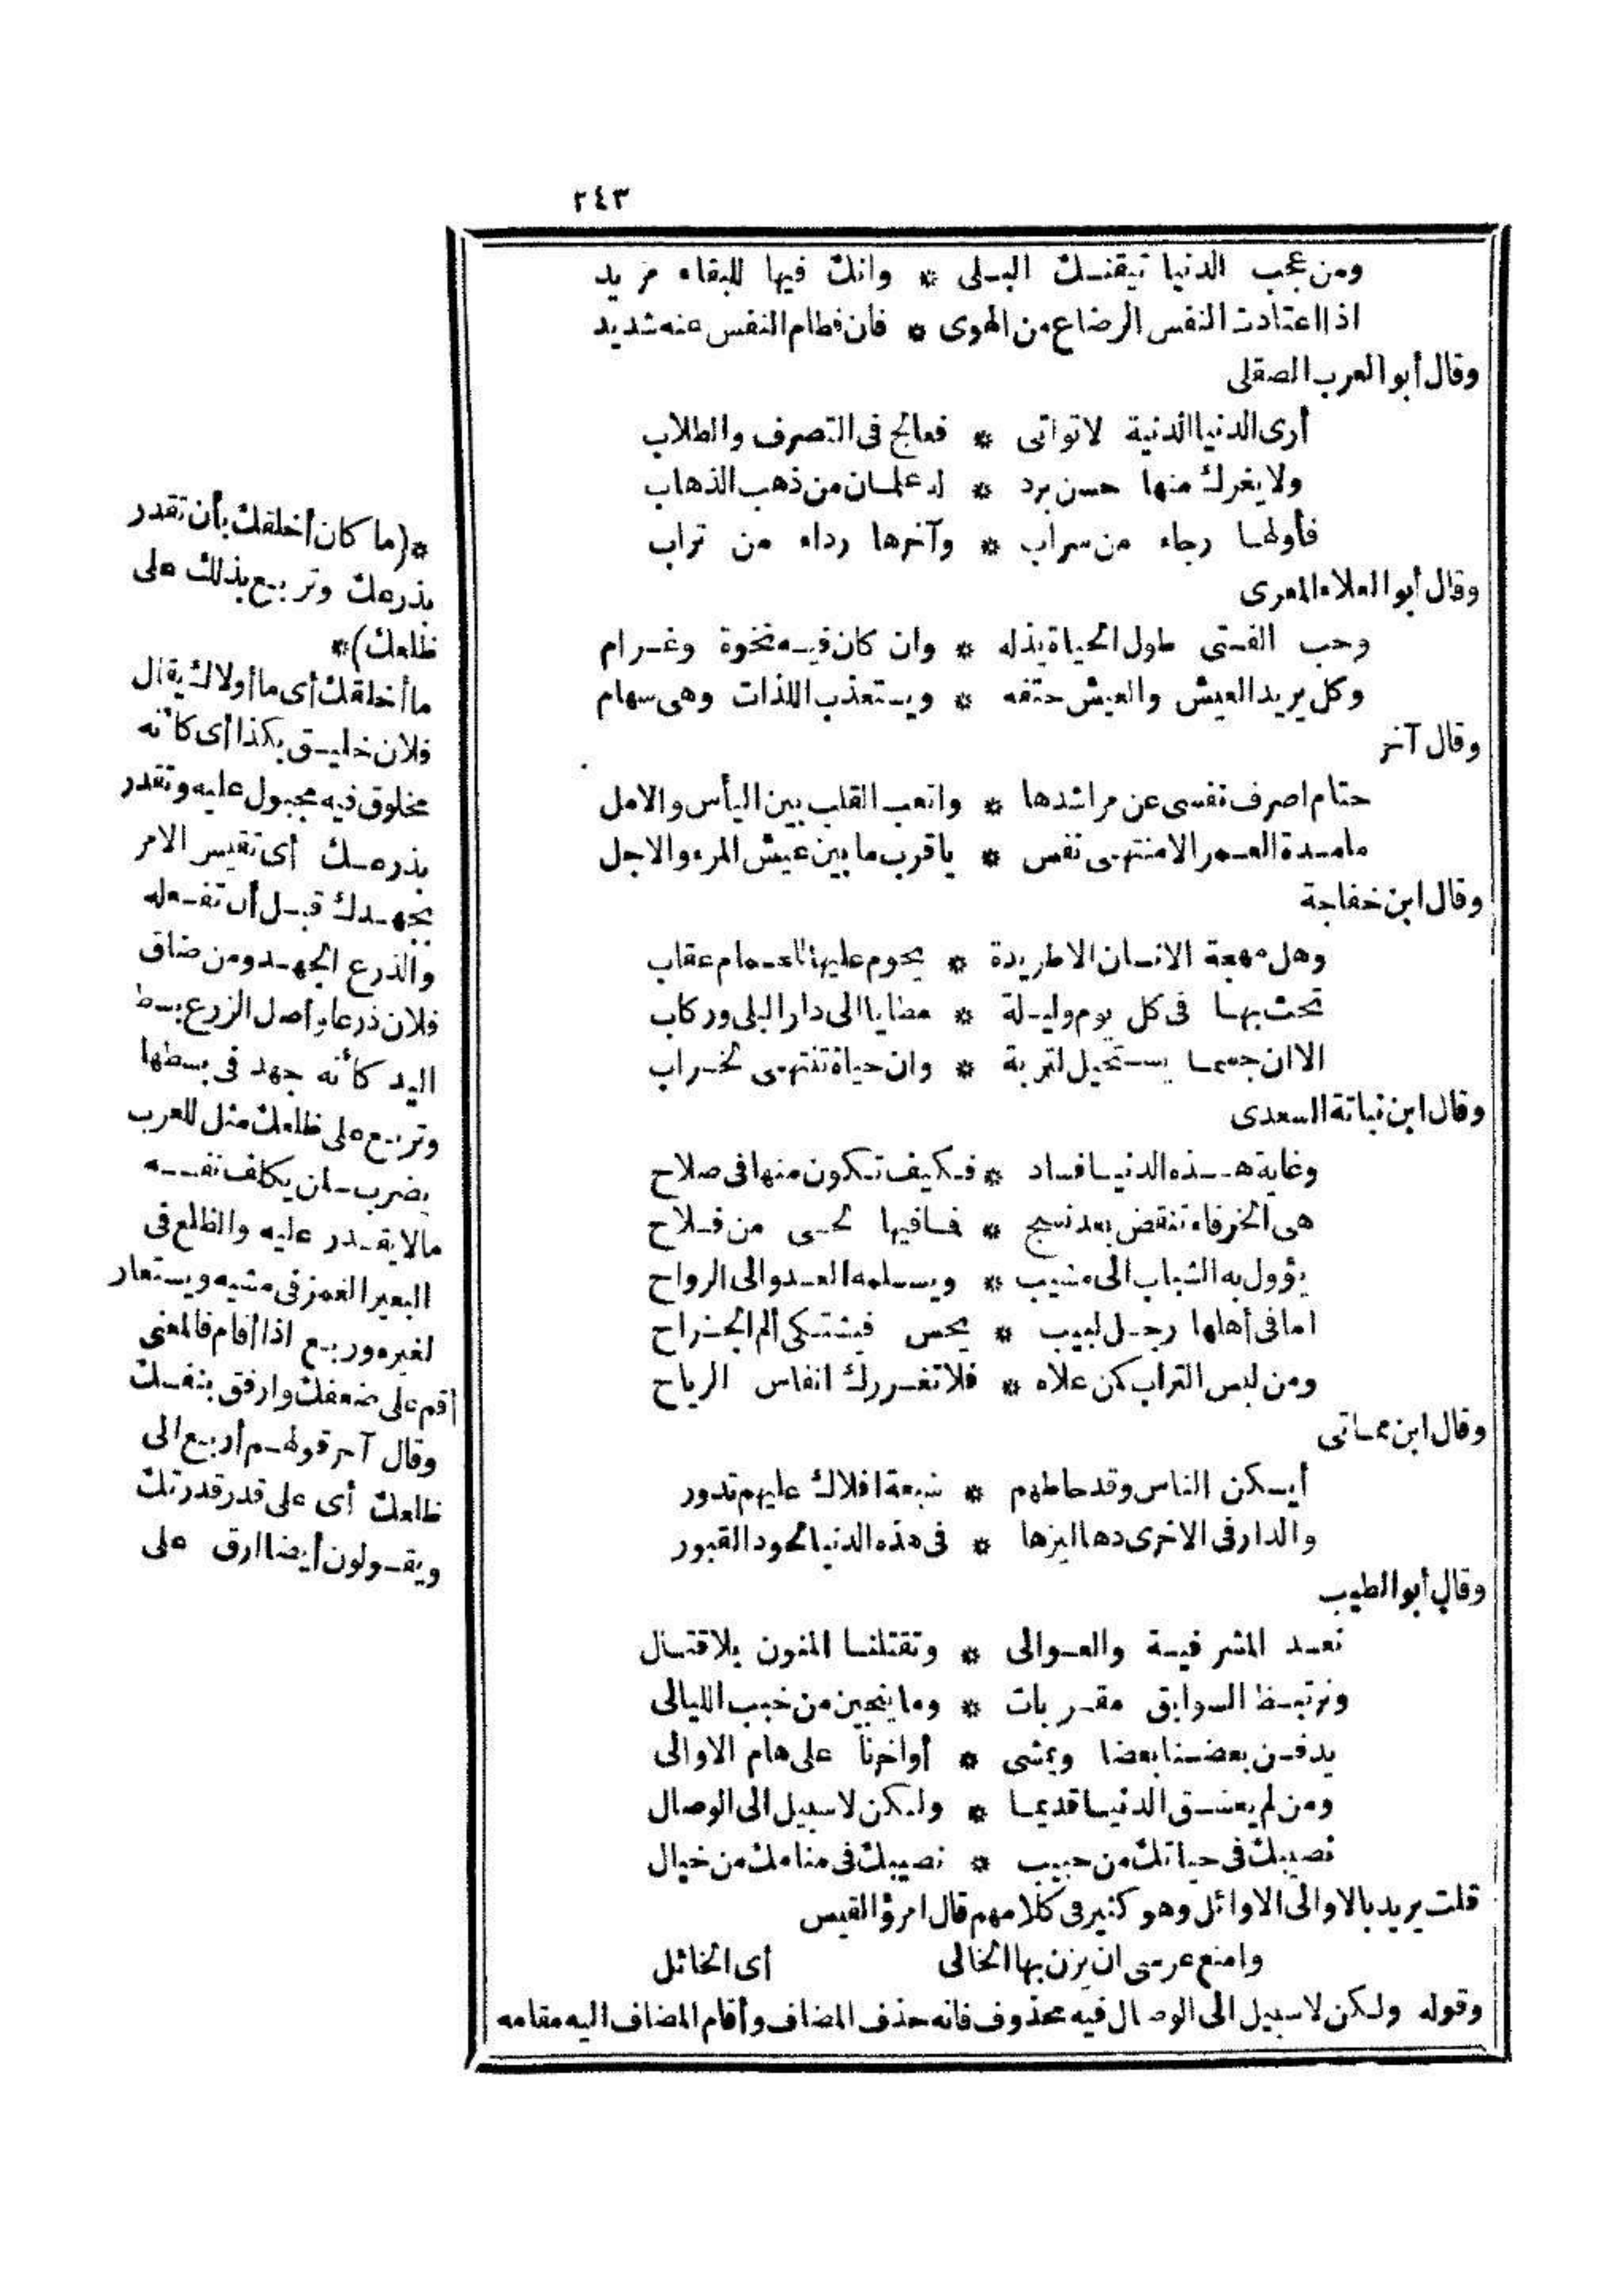 ٢٤٣
ومن عجب الدنيا تيقنك البلى * وانك فيها للبقاء مريد
اذا اعتادت النفس الرضاع من الهوى * فان فطام النفس عنه شديد
وقال أبو العرب الصقلى
أرى الدنيا الدنية لا تواتى * فعالج فى التصرف والطلاب
ولا يغرك منها حسن برد * له علمان من ذهب الذهاب
فأولها رجاء من سراب * وآخرها رداء من تراب
وقال أبو العلاء المعرى
وحب الفتى طول الحياة يذله * وان كان فيه نخوة وغرام
وكل يريد العيش والعيش حتفه * ويستعذب اللذات وهى سهام
وقال آخر
حتام اصرف نفسى عن مراشدها * واتعب القلب بين اليأس والامل
ما مدة العمر الا منتهى نفس * يا قرب ما بين عيش المرء والاجل
وقال ابن خفاجة
وهل مهجة الانسان الا طريدة * يحوم عليها للحمام عقاب
تحث بها فى كل يوم وليلة * مطايا الى دار البلى وركاب
الا ان جسما يستحيل لتربة * وان حياة تنتهى لخراب
وقال ابن نباتة السعدى
وغاية هذه الدنيا فساد * فكيف تكون منها فى صلاح
هى الخرقاء تنقض بعد نسج * فما فيها لحى من فلاح
يؤول به الشباب الى مشيب * ويسلمه الغدو الى الرواح
اما فى أهلها رجل لبيب * يحس فيشتكى ألم الجراح
ومن لبس التراب كن علاه * فلا تغررك انفاس الرياح
وقال ابن مماتى
أيسكن الناس وقد حاطهم * سبعة افلاك عليهم تدور
والدار فى الاخرى دهاليزها * فى هذه الدنيا لحود القبور
وقال أبو الطيب
نعد المشرفية والعوالى * وتقتلنا المنون بلا قتال
ونرتبط السوابق مقربات * وما ينجين من خبب الليالى
يدفن بعضنا بعضا ويمشى * أواخرنا على هام الاوالى
ومن لم يعشق الدنيا قديما * ولكن لا سبيل الى الوصال
نصيبك فى حياتك من حبيب * نصيبك فى منامك من خيال
قلت يريد بالاوالى الاوائل وهو كثير فى كلامهم قال امرؤ القيس
وامنع عرسى ان يزن بها الخالى أى الخائل
وقوله ولكن لا سبيل الى الوصال فيه محذوف فانه حذف المضاف وأقام المضاف اليه مقامه
*(ما كان أخلقك بأن تقدر
بذرعك وتربع بذلك على
ظلعك)*
ما أخلقك أى ما أولاك يقال
فلان خليق بكذا أى كأنه
مخلوق فيه مجبول عليه وتقدر
بذرعك أى تقيس الامر
بجهدك قبل أن تفعله
والذرع الجهد ومن ضاق
فلان ذرعا وأصل الزرع بسط
اليد كأنه جهد فى بسطها
وتربع على ظلعك مثل للعرب
يضرب لمن يكلف نفسه
مالا يقدر عليه والظلع فى
البعير الغمز فى مشيه ويستعار
لغيره وربع اذا أقام فالمعنى
أقم على ضعفك وارفق بنفسك
وقال آخر قولهم أربع الى
ظلعك أى على قدر قدرتك
ويقولون أيضا ارق على